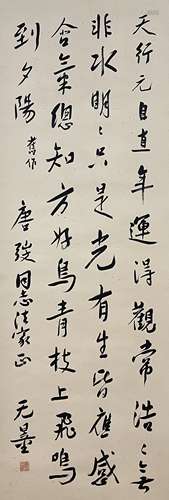 天行元自直年運得觀常浩〻無
非水明〻只是光有生皆應感
含氣總知方好鳥青枝上飛鳴
到夕陽 舊作
唐弢同志法家正 无量